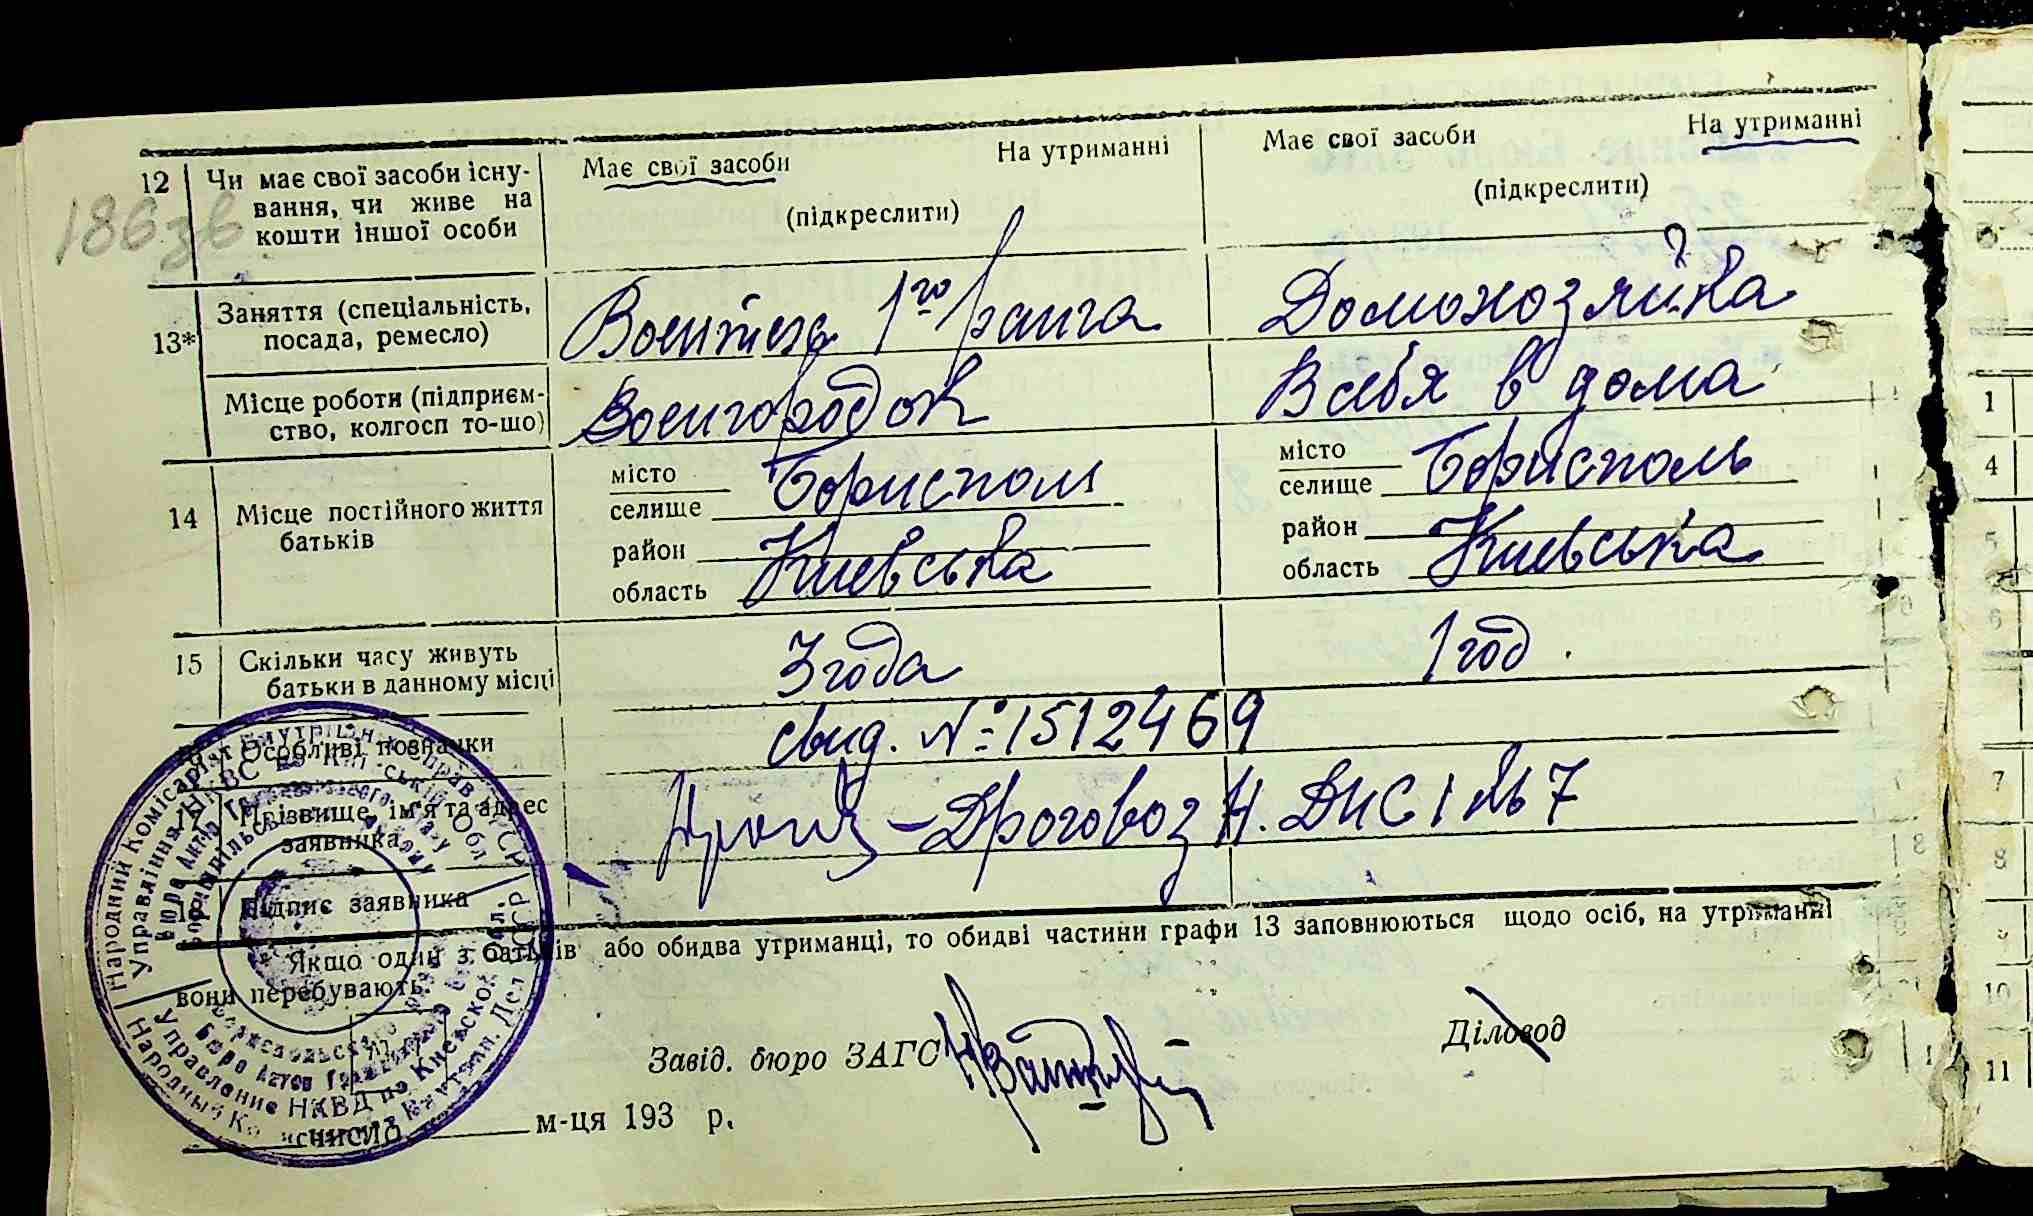 186зв
12 Чи має свої засоби існу-
вання, чи живе на
кошти іншої особи
Має свої засоби На утриманні
(підкреслити)
Має свої засоби На утриманні
(підкреслити)
13* Заняття (спеціальність,
посада, ремесло)
Воентехн 1го ранга
Домохозяйка
Місце роботи (підприєм-
ство, колгосп то-що)
Военгородок
В себя в дома
14 Місце постійного життя
батьків
місто
селище Борисполь
район
область Киевська
місто
селище Борисполь
район
область Киевська
15 Скільки часу живуть
батьки в данному місці
3 года
1 год
Особливі позначки
свид. №: 1512469
17 Прізвище, ім'я та адрес
заявника
Дроговоз Н. ДНС 1 № 7
Підпис заявника
Якщо один з батьків або обидва утриманці, то обидві частини графи 13 заповнюються щодо осіб, на утриманні
вони перебувають
Завід. бюро ЗАГС
Діловод
число м-ця 193 р.
Народний Комісаріат Внутрішніх Справ УРСР
Управління НКВС по Київській Обл.
Бюро Актів Громадянського Стану
Бюро Актов Гражданского
Управление НКВД по Киевской обл.
Народный
1
4
5
6
7
8
9
10
11